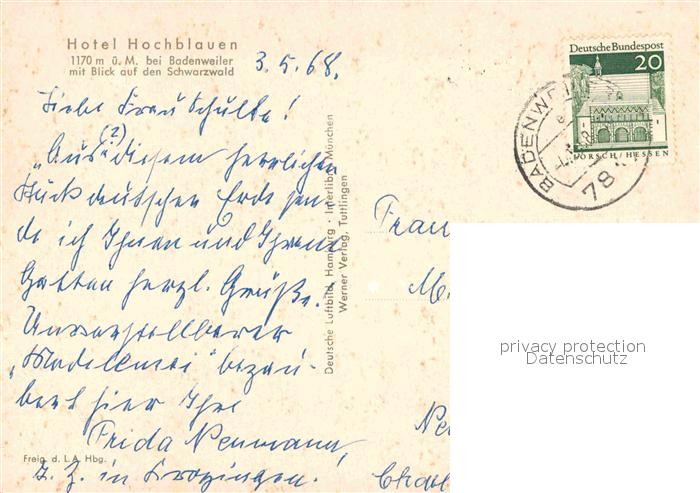 Hotel Hochblauen
1170 m ü. M. bei Badenweiler
mit Blick auf den Schwarzwald
3.5.68.
Liebe Frau Schulte!
(2)
„Aus diesem herrlichen
Stück deutscher Erde sen-
de ich Ihnen und Ihrem
Gatten herzl. Grüße.
Unvorstellbarer
„Modellmai" bezau-
bert hier Ihre
Frida Neumann,
z. Z. in Krozingen.
Freig. d. L.A. Hbg.
Deutsche Luftbild, Hamburg · Interlibro, München
Werner Verlag, Tuttlingen
Deutsche Bundespost
20
LORSCH/HESSEN
BADENWEI
78
Frau
privacy protection
Datenschutz